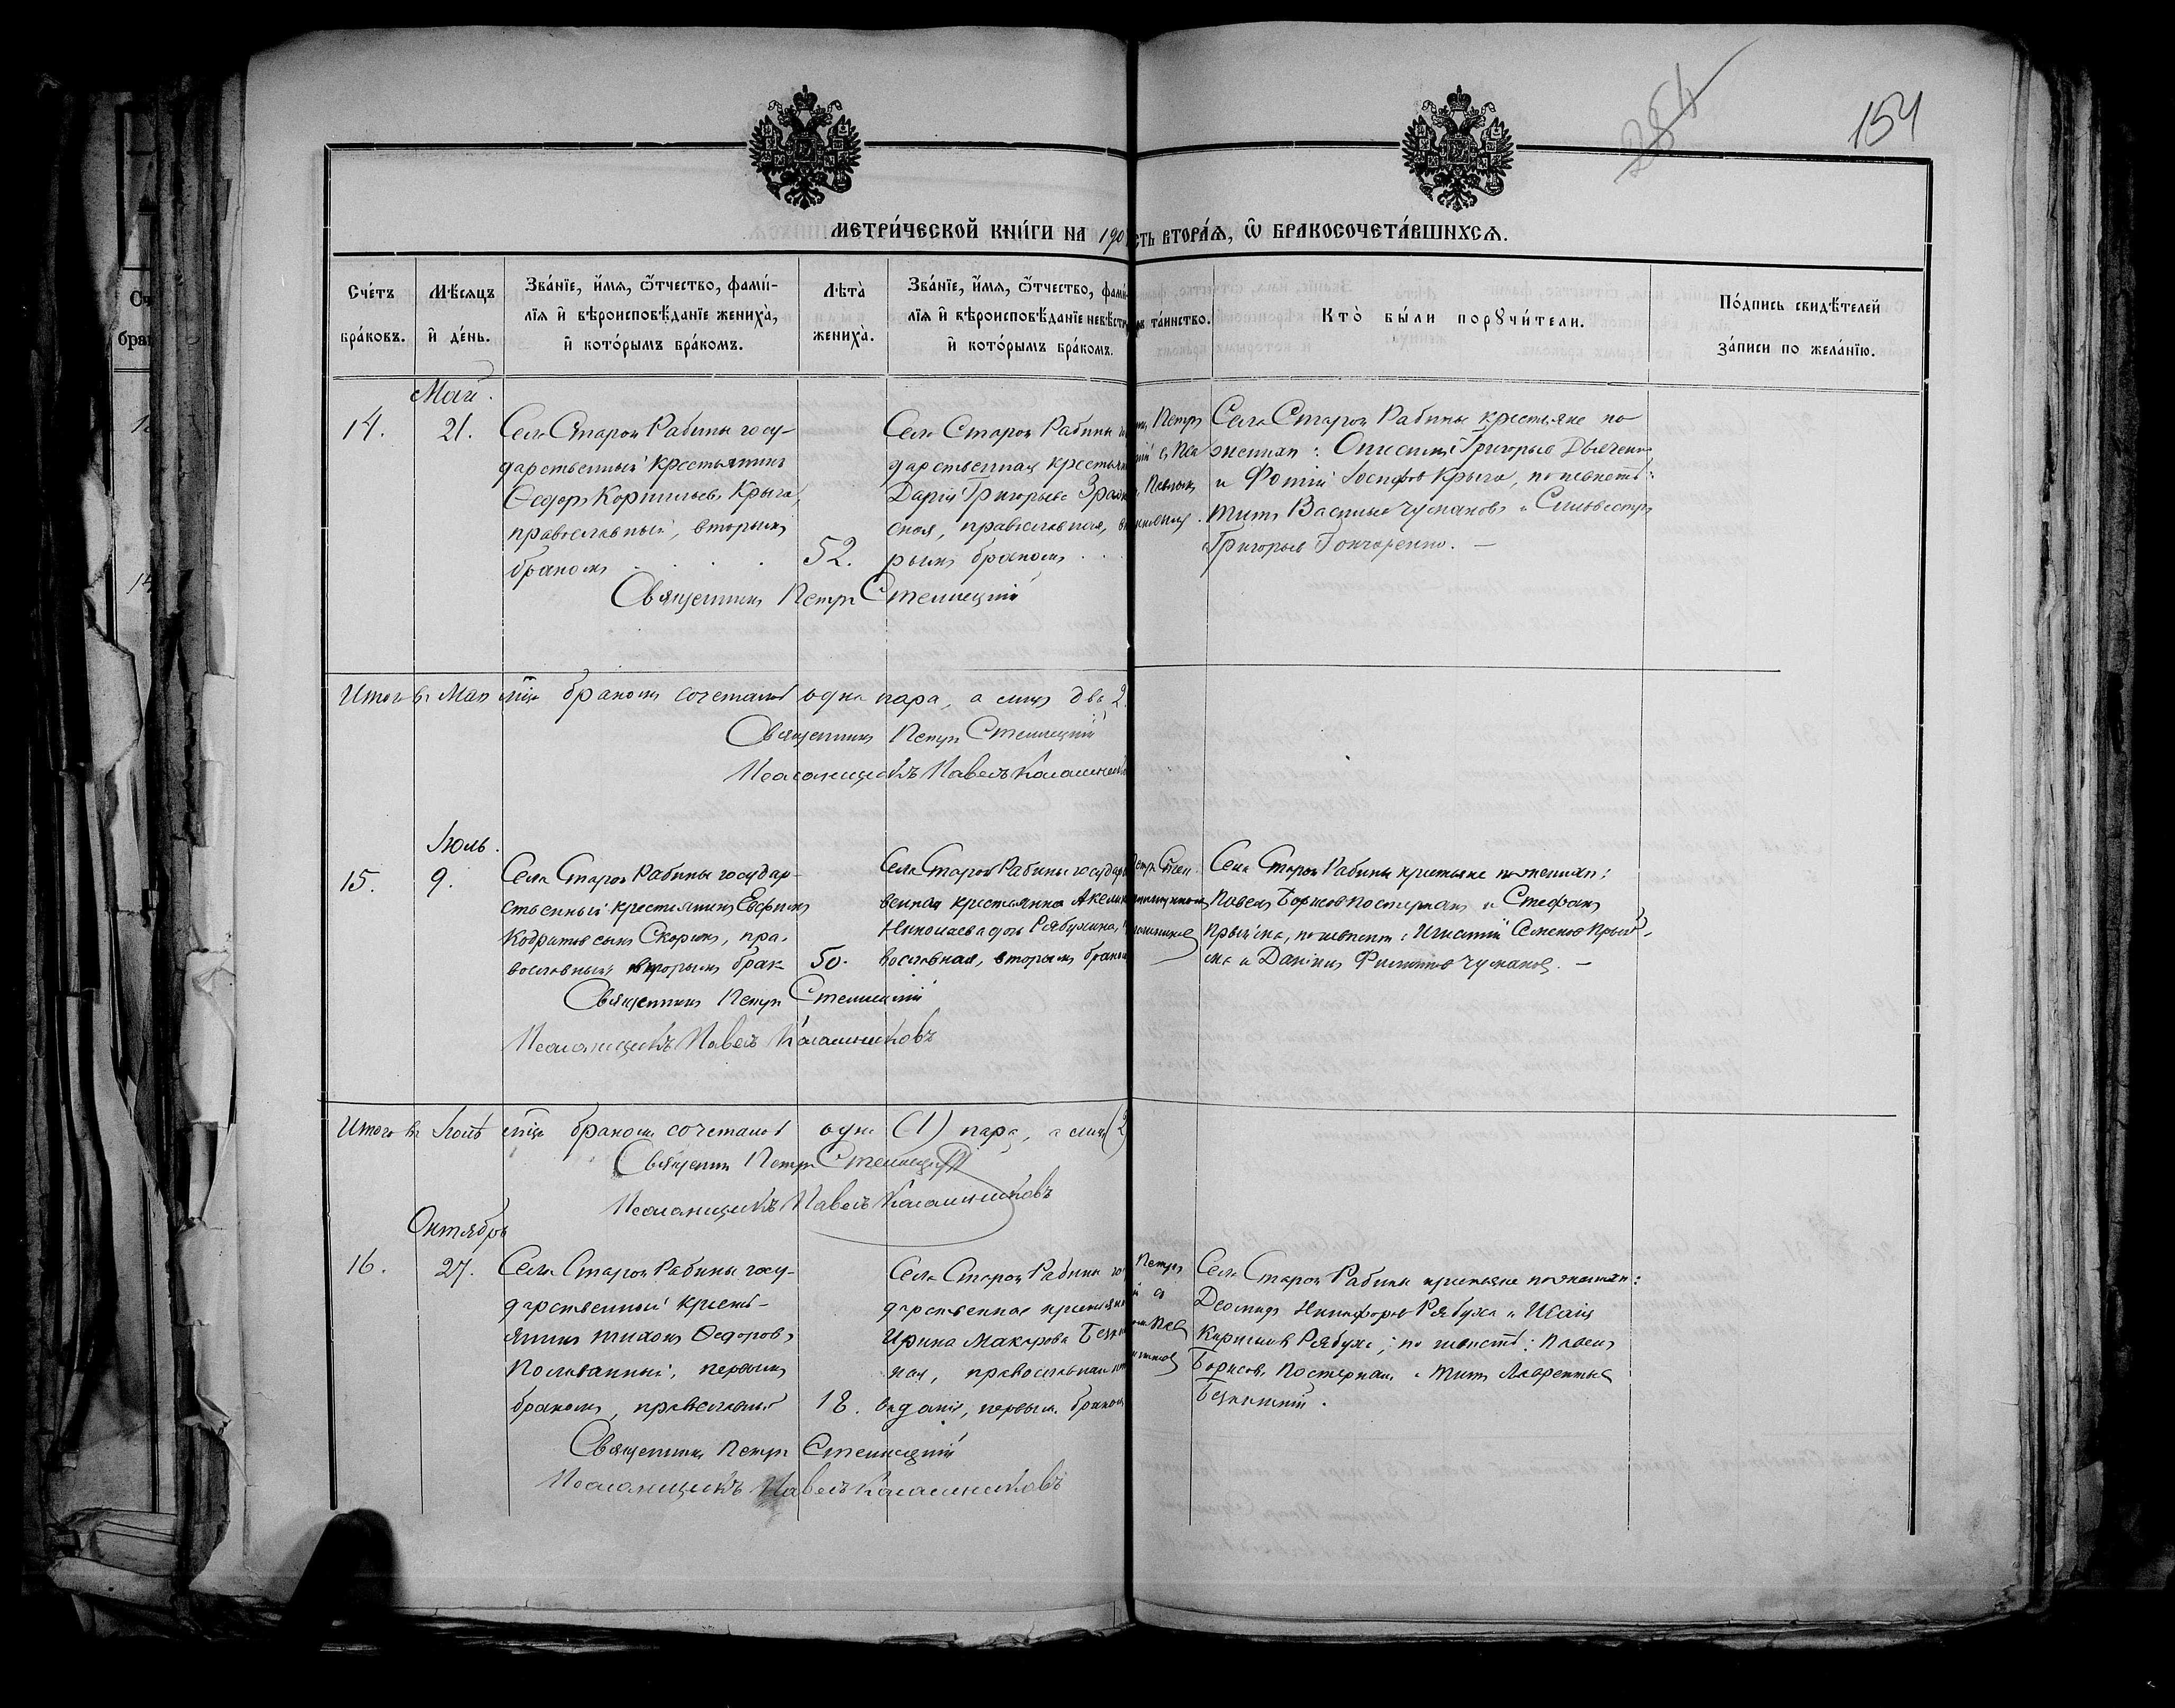 284
154
МЕТРИ́ЧЕСКОЙ КНИ́ГИ НА 190
СТЬ ВТОРА́Ѧ, Ѽ БРАКОСОЧЕТА́ВШИХСѦ.
Сче́тъ бра́ковъ.
Мѣ́сяцъ и҆ де́нь.
Зва́нїе, и҆́мѧ, ѻ҆́тчество, фами́-
лїѧ и҆ вѣроисповѣ́данїе жениха̀,
и҆ кото́рымъ бра́комъ.
Лѣта̀ жениха̀.
Зва́нїе, и҆́мѧ, ѻ҆́тчество, фами́-
лїѧ и҆ вѣроисповѣ́данїе невѣсты
и҆ кото́рымъ бра́комъ.
та́инство.
Кто̀ бы́ли порꙋчи́тели.
По́дпись свидѣ́телей
за́писи по жела́нїю.
Май.
14.
21.
Села Старой Рабины госу-
дарственный крестьянинъ
Ѳедоръ Корнильевъ Крыга,
православный, вторымъ
бракомъ
52.
Села Старой Рабины го
дарственная крестьян
Дарія Григорьева
ская, православная, в
рымъ бракомъ
Петръ
Села Старой Рабины крестьяне по
женихѣ: Григорьев Дьяченко
и Фотій Іосифов Крыга, по невѣстѣ:
Титъ Васильев Чумаковъ и Сильвестръ
Григорьев Гончаренко. —
Священникъ Петръ Стеллецкій
Итого въ Маѣ мцѣ бракомъ сочеталось одна пара, а лицъ два 2.
Священникъ Петръ Стеллецкій
Псаломщикъ Павелъ Калашников
Іюль.
15.
9.
Села Старой Рабины государ-
ственный крестьянинъ
Кодратов сынъ Скорикъ, пра-
вославный вторымъ брак
50.
Села Старой Рабины государ
венная крестьянка
Николаева дочь Рябухина,
вославная, вторымъ браком
Села Старой Рабины крестьяне по женихѣ:
Павелъ Борисов Постернакъ и Стефанъ
по невѣстѣ: Игнатій Семенов
и Даніилъ Филиппов Чумаковъ. —
Священникъ Петръ Стеллецкій
Псаломщикъ Павелъ Калашниковъ
Итого въ Іюлѣ мцѣ бракомъ сочеталось одна (1) пара, а лицъ (2
Священник Петръ Стеллецкій
Псаломщикъ Павелъ Калашниковъ
Октябрь
16.
27.
Села Старой Рабины госу-
дарственный кресть-
янинъ Тихонъ Ѳедоровъ
Поливанный, первымъ
бракомъ, православный
18.
Села Старой Рабины го
дарственная крестьян
Ирина Макарова
ная, православнаго
вѣданія, первымъ браком
Петръ
Села Старой Рабины крестьяне по женихѣ:
Деомидъ Никифоров Рябуха и Исаія
Кирилов Рябуха; по невѣстѣ: Павелъ
Борисовъ Постернакъ и Титъ Лаврентьев
Священникъ Петръ Стеллецкій
Псаломщикъ Павелъ Калашниковъ